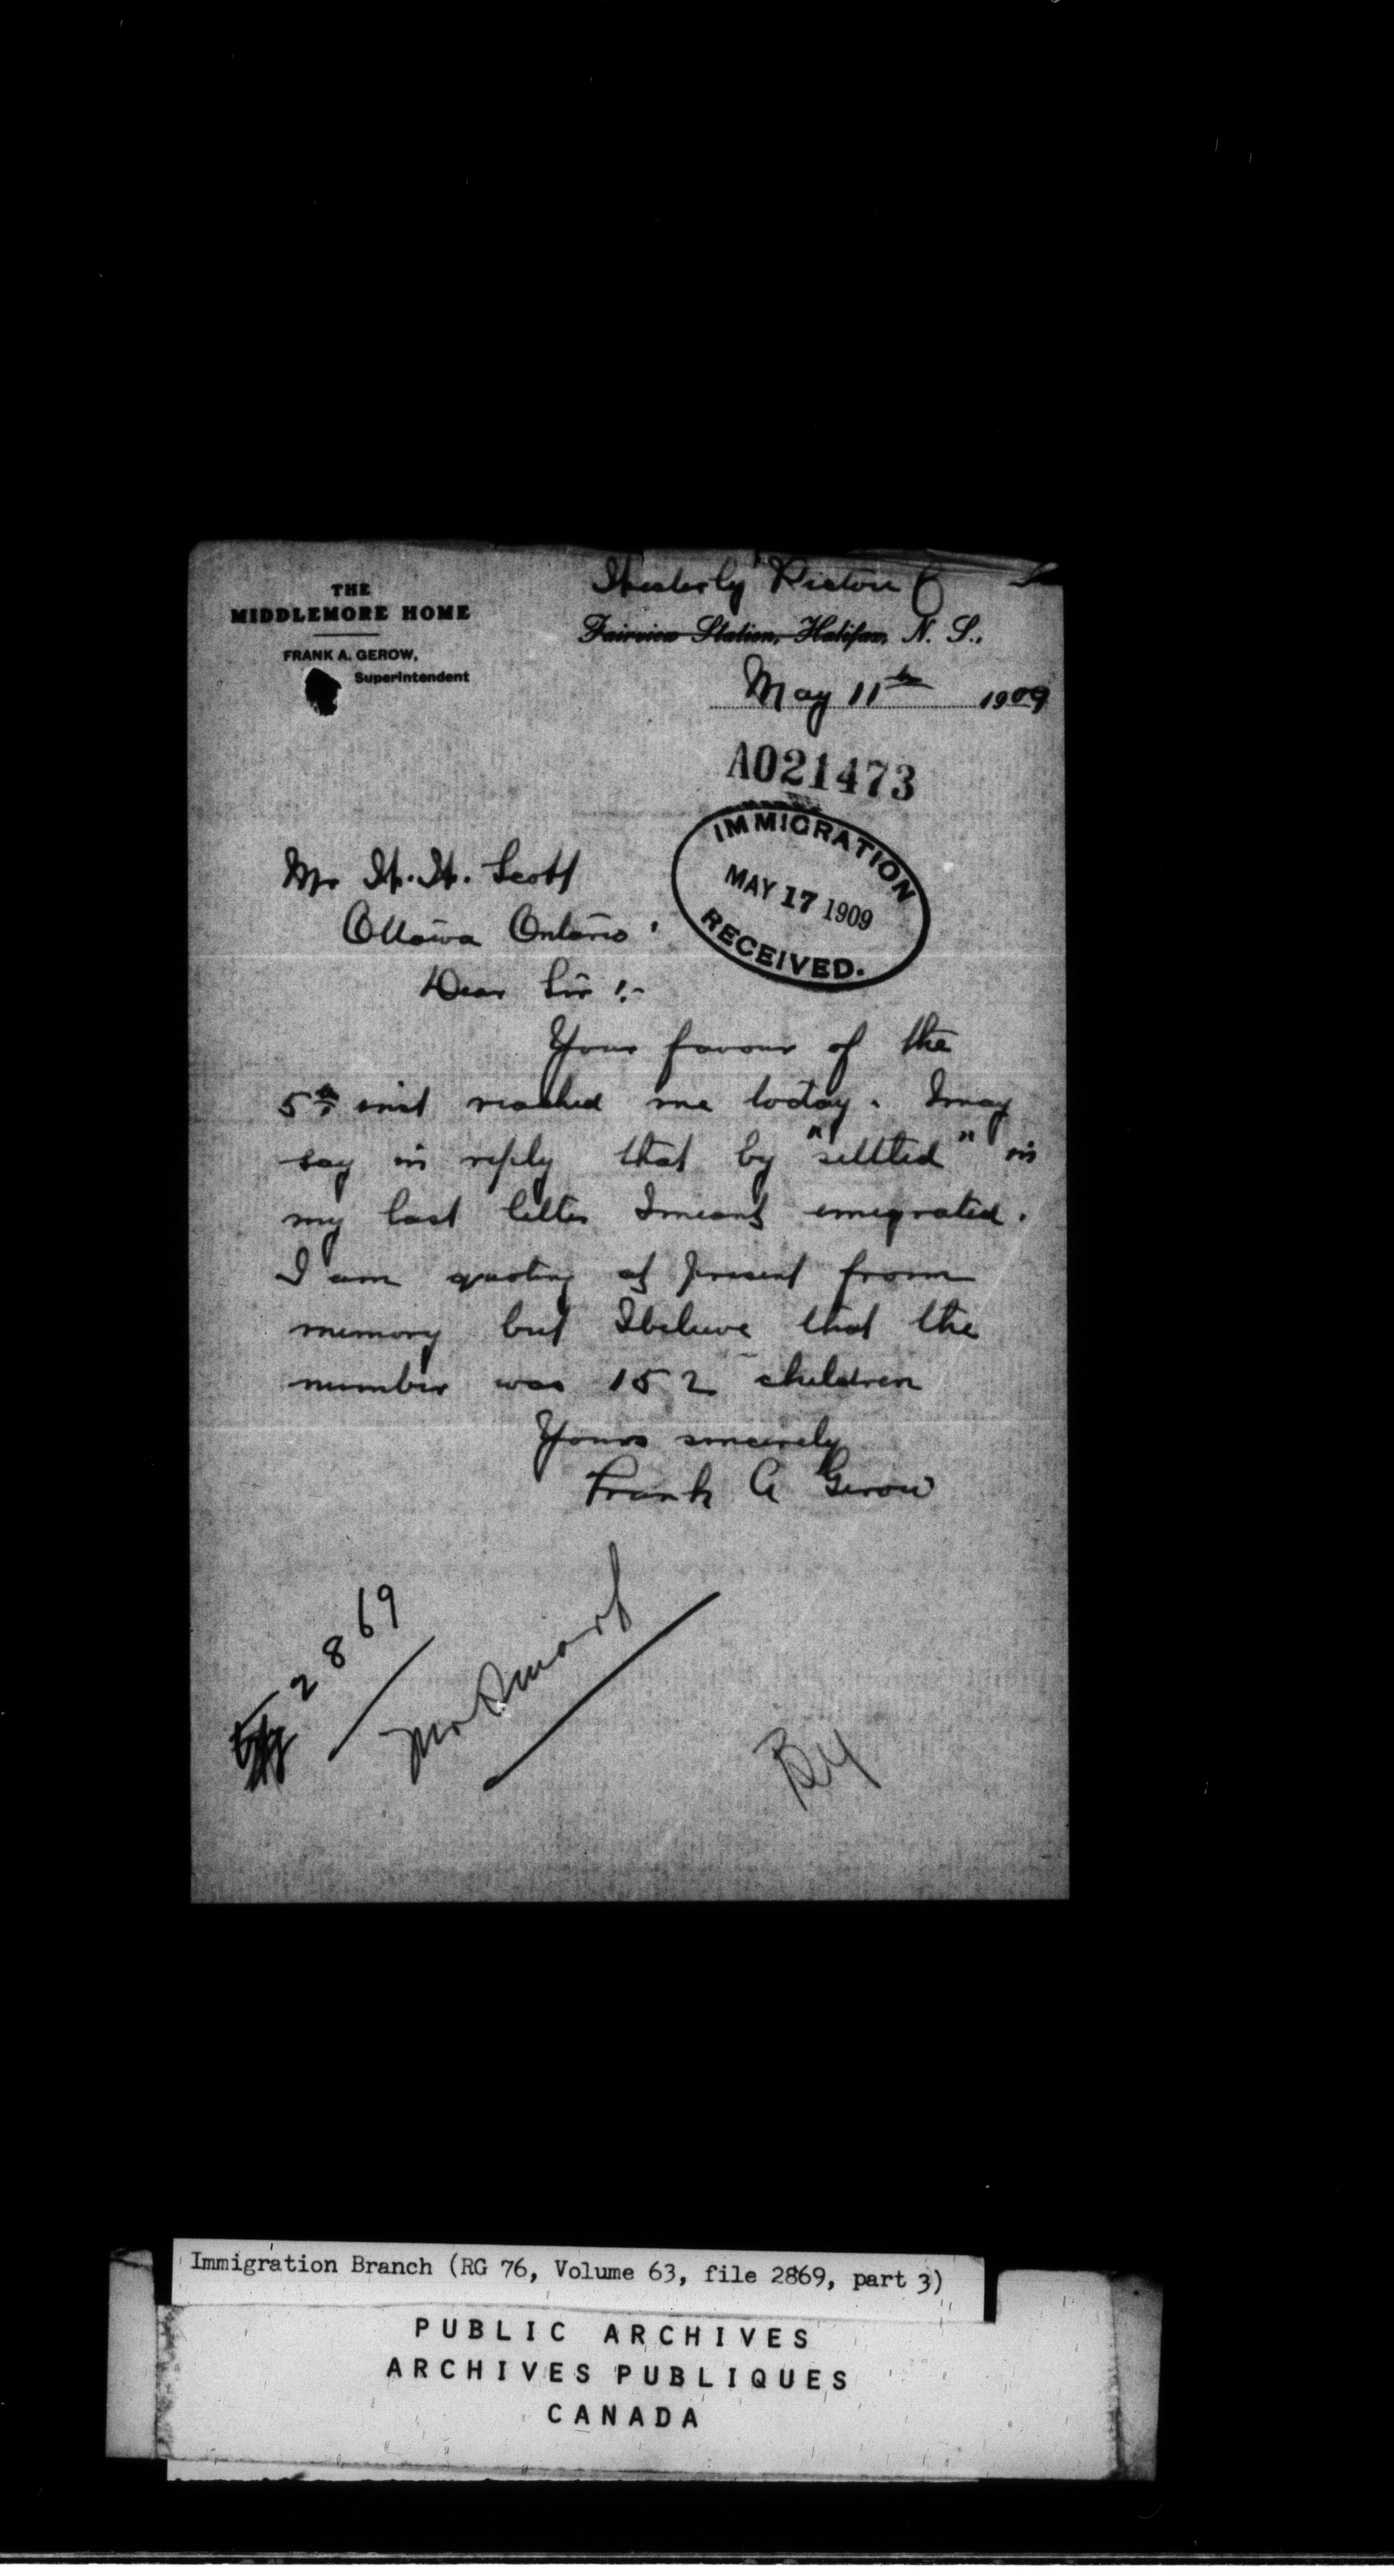 THE
MIDDLEMORE HOME
FRANK A. GEROW,
Superintendent
Westerly Pictou
Fairview Station, Halifax, N. S.,
May 11th 1909
A021473
IMMIGRATION
MAY 17 1909
RECEIVED.
Mr W. W. Scott
Ottawa Ontario
Dear Sir :-
Your favour of the
5th inst reached me today. I may
say in reply that by "settled" in
my last letter I meant emigrated.
I am quoting at present from
memory but I believe that the
number was 152 children
Yours sincerely
Frank A Gerow
2869
Mr Smart
Immigration Branch (RG 76, Volume 63, file 2869, part 3)
PUBLIC ARCHIVES
ARCHIVES PUBLIQUES
CANADA